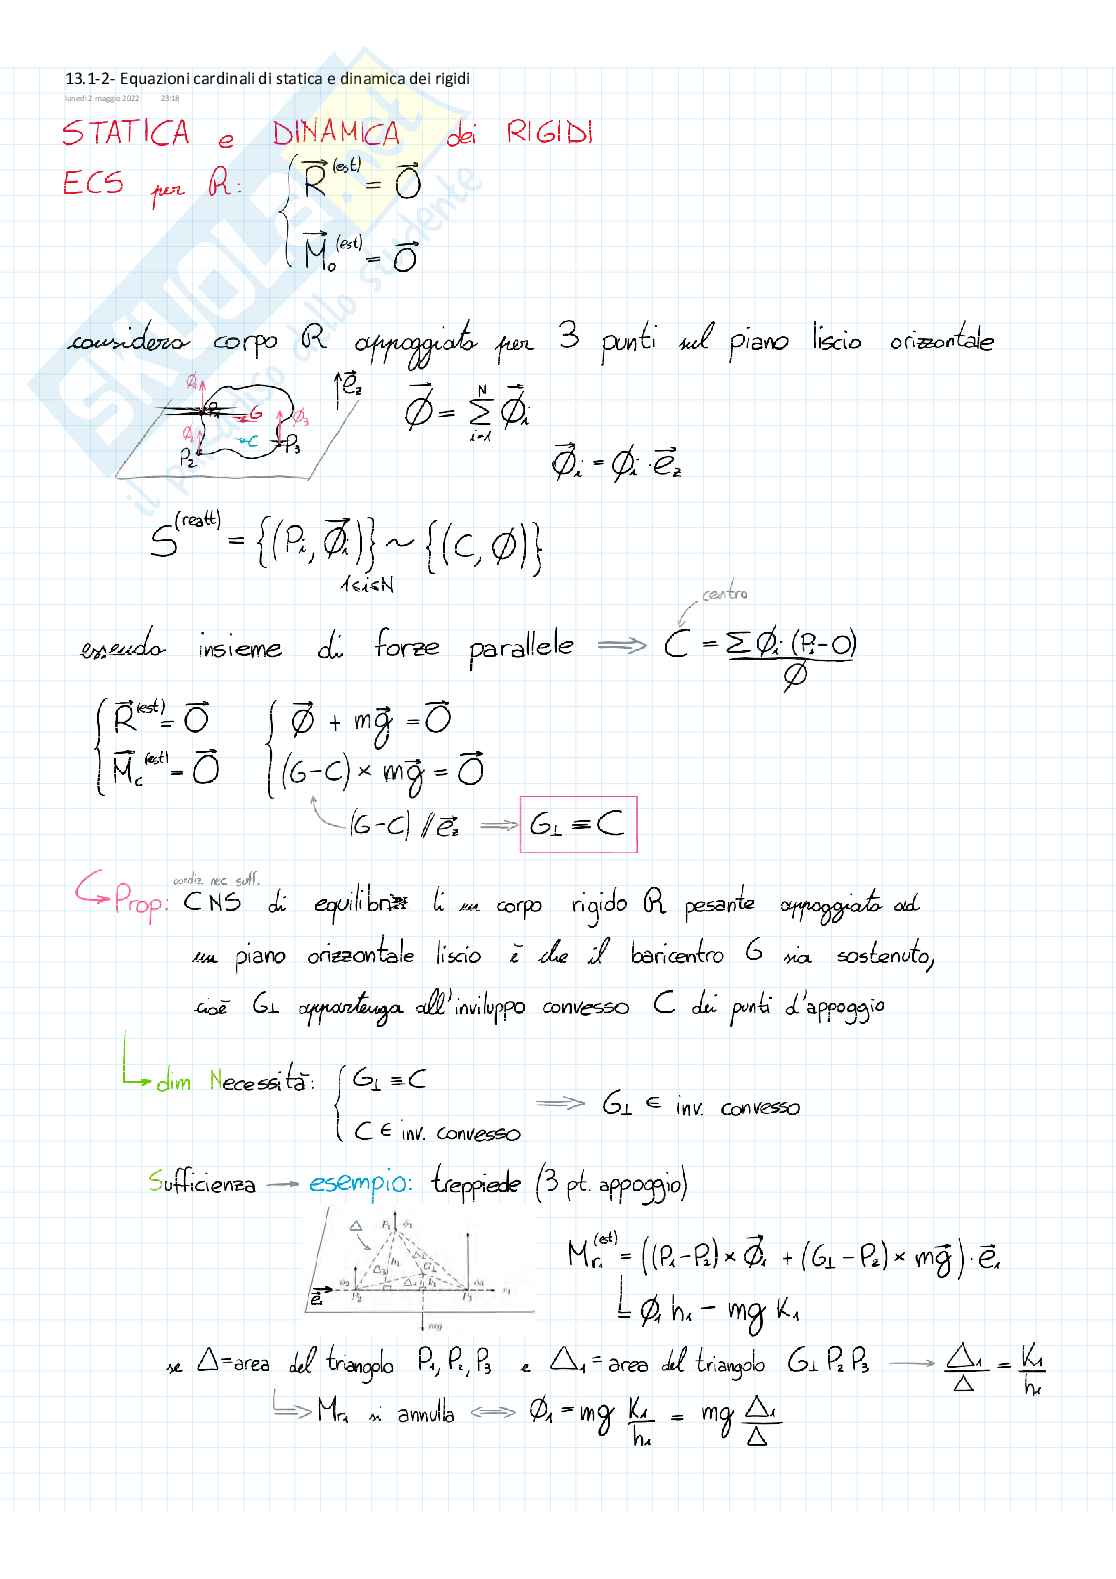 13.1-2- Equazioni cardinali di statica e dinamica dei rigidi
lunedì 2 maggio 2022 23:18
STATICA e DINAMICA dei RIGIDI
ECS per R: { R⃗^(est) = O⃗
M⃗_o^(est) = O⃗
considero corpo R appoggiato per 3 punti sul piano liscio orizzontale
ϕ₁ P₁ G ϕ₃ C P₂ P₃ e⃗_z
ϕ⃗ = Σ_{i=1}^{N} ϕ⃗_i
ϕ⃗_i = ϕ_i · e⃗_z
S^(reatt) = {(P_i, ϕ⃗_i)}_{1≤i≤N} ~ {(C, ϕ)}
centro
essendo insieme di forze parallele ⟹ C = Σ ϕ_i (P_i-O) / ϕ
{ R⃗^(est) = O⃗ { ϕ⃗ + mg⃗ = O⃗
M⃗_c^(est) = O⃗ (G-C) × mg⃗ = O⃗
(G-C) // e⃗_z ⟹ G⊥ ≡ C
condiz. nec. suff.
Prop: CNS di equilibrio di un corpo rigido R pesante appoggiato ad
un piano orizzontale liscio è che il baricentro G sia sostenuto,
cioè G⊥ appartenga all'inviluppo convesso C dei punti d'appoggio
dim Necessità: { G⊥ ≡ C
C ∈ inv. convesso ⟹ G⊥ ∈ inv. convesso
Sufficienza → esempio: treppiede (3 pt. appoggio)
Δ P₁ P₂ P₃ G⊥ h₁ e⃗₁ mg
M_r₁^(est) = ((P₁-P₂) × ϕ⃗₁ + (G⊥-P₂) × mg⃗) · e⃗₁
= ϕ₁ h₁ - mg K₁
se Δ = area del triangolo P₁, P₂, P₃ e Δ₁ = area del triangolo G⊥ P₂ P₃ → Δ₁/Δ = K₁/h₁
⟹ M_r₁ si annulla ⟺ ϕ₁ = mg K₁/h₁ = mg Δ₁/Δ
SKUOLA.net
il paradiso dello studente